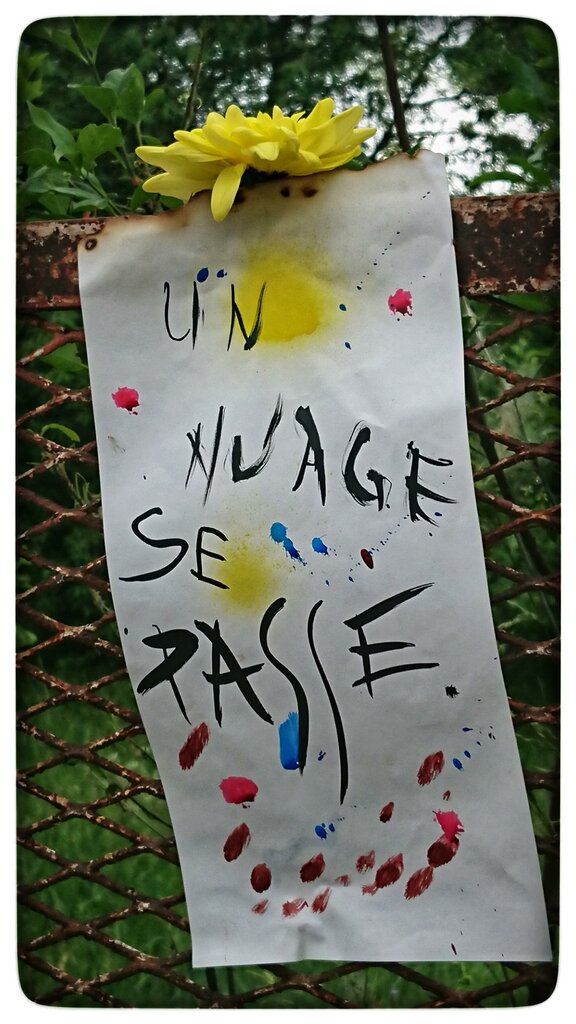 UN
NUAGE
SE
PASSE.